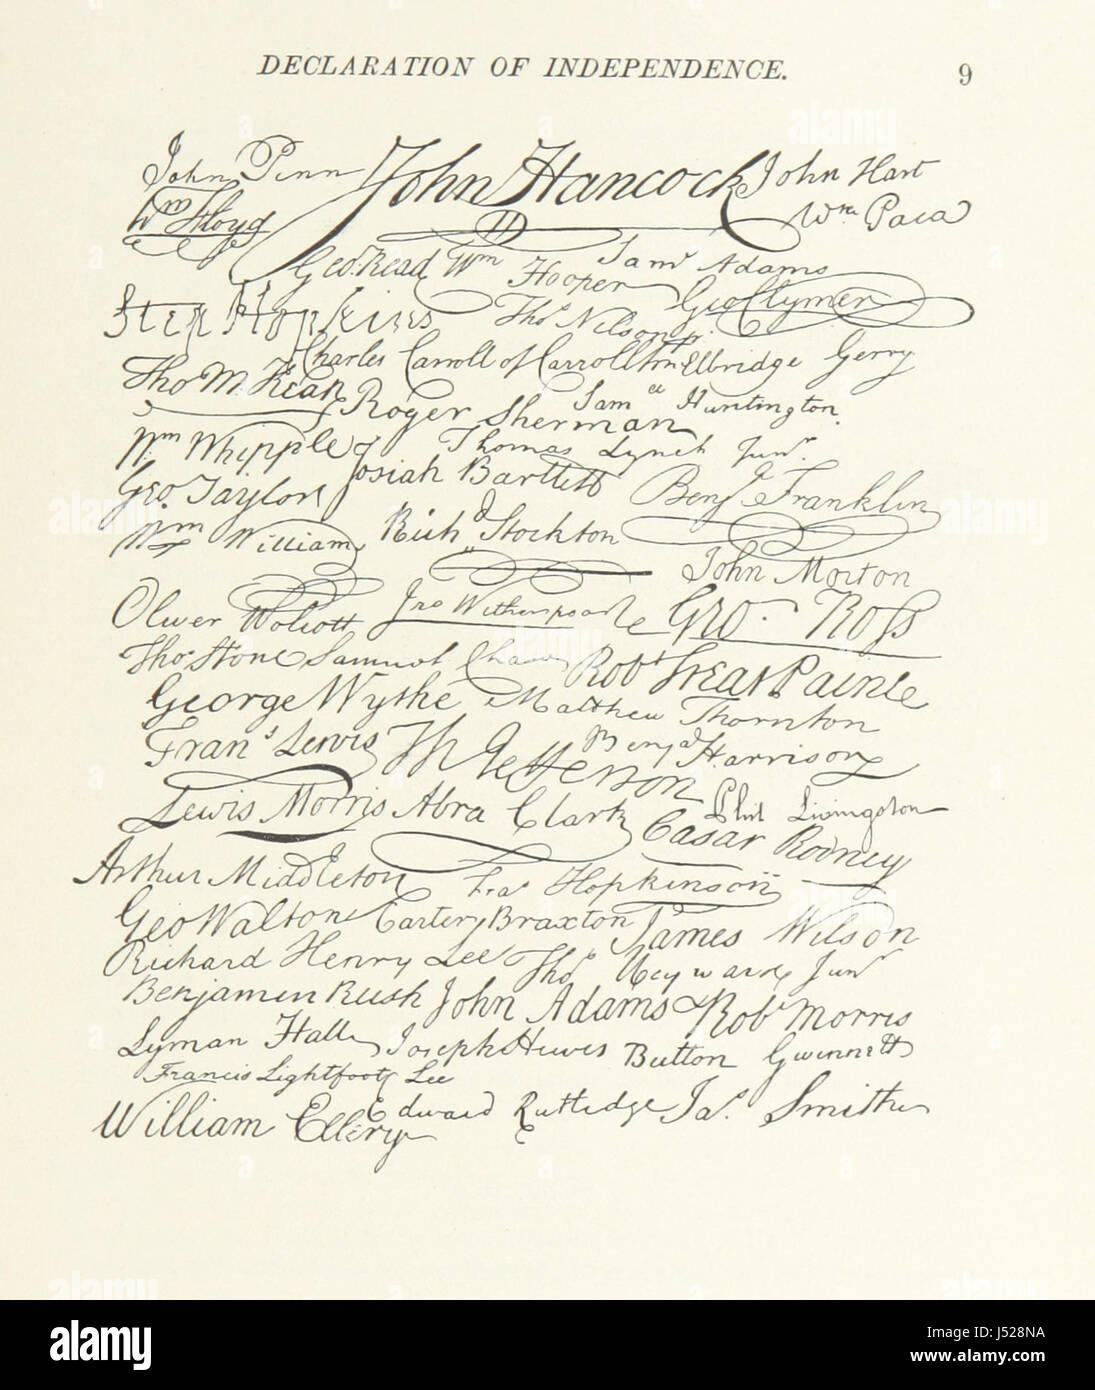 DECLARATION OF INDEPENDENCE. 9
John Penn John Hancock John Hart
Wm Floyd Wm Paca
Geo. Read Wm Hooper Sam' Adams
Geo Clymer
Step Hopkins Thos Nelson jr.
Charles Carroll of Carrollton Elbridge Gerry
Tho M. Kean Roger Sherman Sam el Huntington.
Wm Whipple Josiah Bartlett Thomas Lynch Junr.
Geo. Taylor Benj a Franklin
Wm William Rich d Stockton
John Morton
Oliver Wolcott Jno Witherspoon Geo. Ross
Thos Stone Samuel Chase Robt Treat Paine
George Wythe Matthew Thornton
Frans Lewis Th Jefferson Benj a Harrison
Lewis Morris Abra Clark Phil Livingston
Caesar Rodney
Arthur Middleton Fras Hopkinson
Geo Walton Carter Braxton James Wilson
Richard Henry Lee Thos Heyward Junr
Benjamin Rush John Adams Robt Morris
Lyman Hall Joseph Hewes Button Gwinnett
Francis Lightfoot Lee
William Ellery Edward Rutledge Jas. Smith
alamy
Image ID: J528NA
www.alamy.com